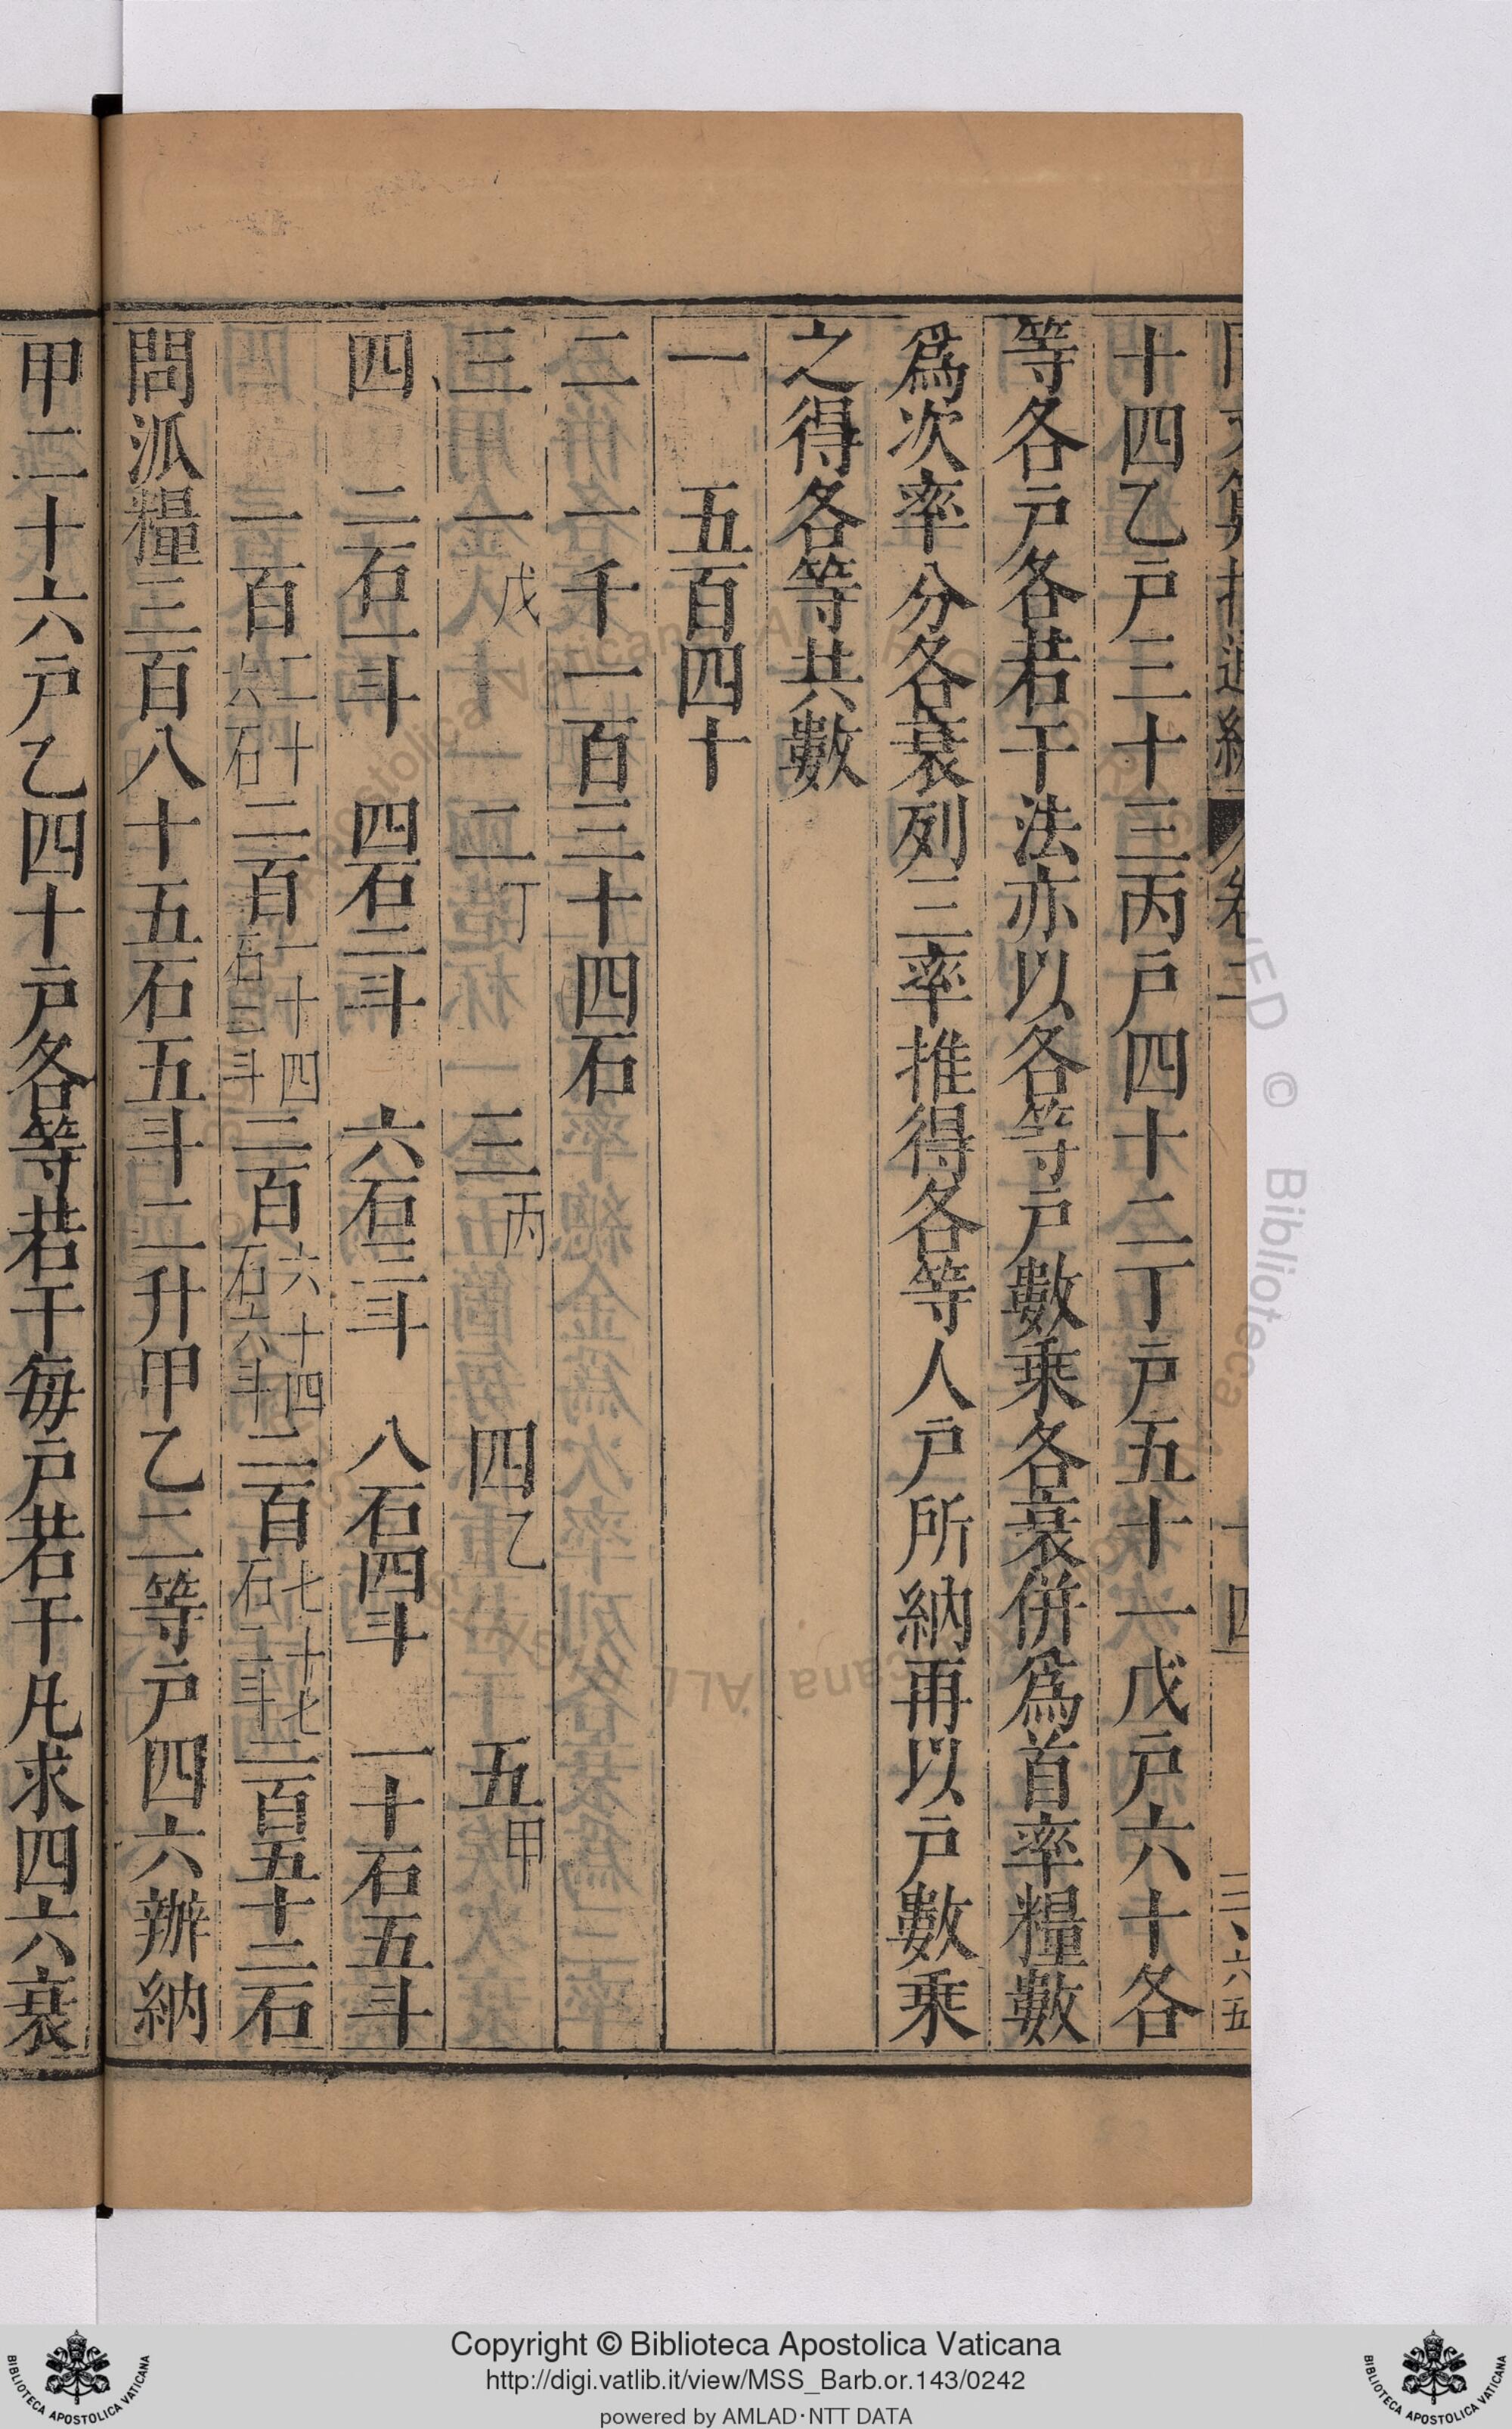 十四乙户三十三丙户四十二丁户五十一戊户六十各
等各户各若干法亦以各等户數乘各衰併爲首率糧數
爲次率分各衰列三率推得各等人户所納再以户數乘
之得各等共數
一 五百四十
二 一千一百三十四石
三 一戊 二丁 三丙 四乙 五甲
四 二石一斗 四石二斗 六石三斗 八石四斗 一十石五斗
一百二十六石 二百一十四石二斗 二百六十四石六斗 二百七十七石二斗 二百五十二石
問派糧三百八十五石五斗二升甲乙二等户四六辦納
甲二十六户乙四十户各等若干每户若干凡求四六衰
Copyright © Biblioteca Apostolica Vaticana
http://digi.vatlib.it/view/MSS_Barb.or.143/0242
powered by AMLAD·NTT DATA
BIBLIOTECA APOSTOLICA VATICANA
BIBLIOTECA APOSTOLICA VATICANA